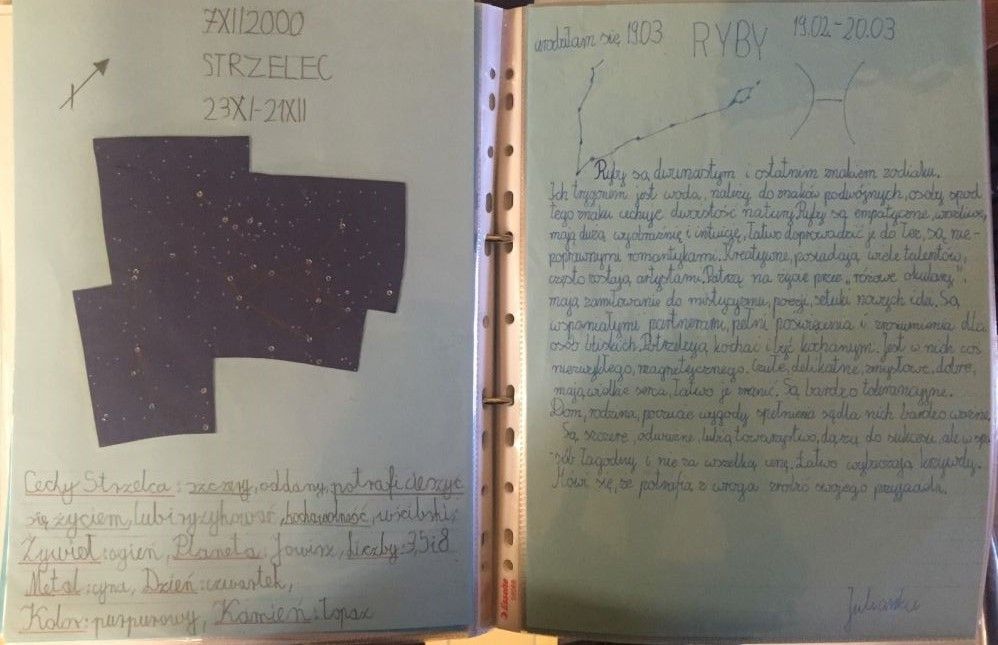 7XII2000
STRZELEC
23XI-21XII
Cechy Strzelca: szczery, oddany, potrafi cieszyć
się życiem, lubi ryzykować, wścibski;
Żywioł: ogień, Planeta: Jowisz, Liczby: 3,5i8
Metal: cyna, Dzień: czwartek,
Kolor: purpurowy, Kamień: topaz
urodziłam się 19.03 RYBY 19.02-20.03
Ryby są dwunastym i ostatnim znakiem zodiaku.
Ich trygonem jest woda, należy do znaków podwójnych, osoby spod
tego znaku cechuje dwoistość natury. Ryby są empatyczne, wrażliwe,
mają dużą wyobraźnię i intuicję, łatwo doprowadzić je do łez, są nie-
poprawnymi romantykami. Kreatywne, posiadają wiele talentów,
często zostają artystami. Patrzą na życie przez "różowe okulary",
mają zamiłowanie do mistycyzmu, poezji, sztuki nowych idei. Są
wspaniałymi partnerami, pełni poświęcenia i zrozumienia dla
osób bliskich. Potrzebują kochać i być kochanym. Jest w nich coś
niezwykłego, magnetycznego. Czułe, delikatne, zmysłowe, dobre,
mają wielkie serca, łatwo je zranić. Są bardzo tolerancyjne.
Dom, rodzina, poczucie wygody spełnienia są dla nich bardzo ważne.
Są szczere, odważne, lubią towarzystwo, dążą do sukcesu, ale w spo
sób łagodny i nie za wszelką cenę. Łatwo wybaczają krzywdy.
Mówi się, że potrafią z wroga zrobić swojego przyjaciela.
Esselte